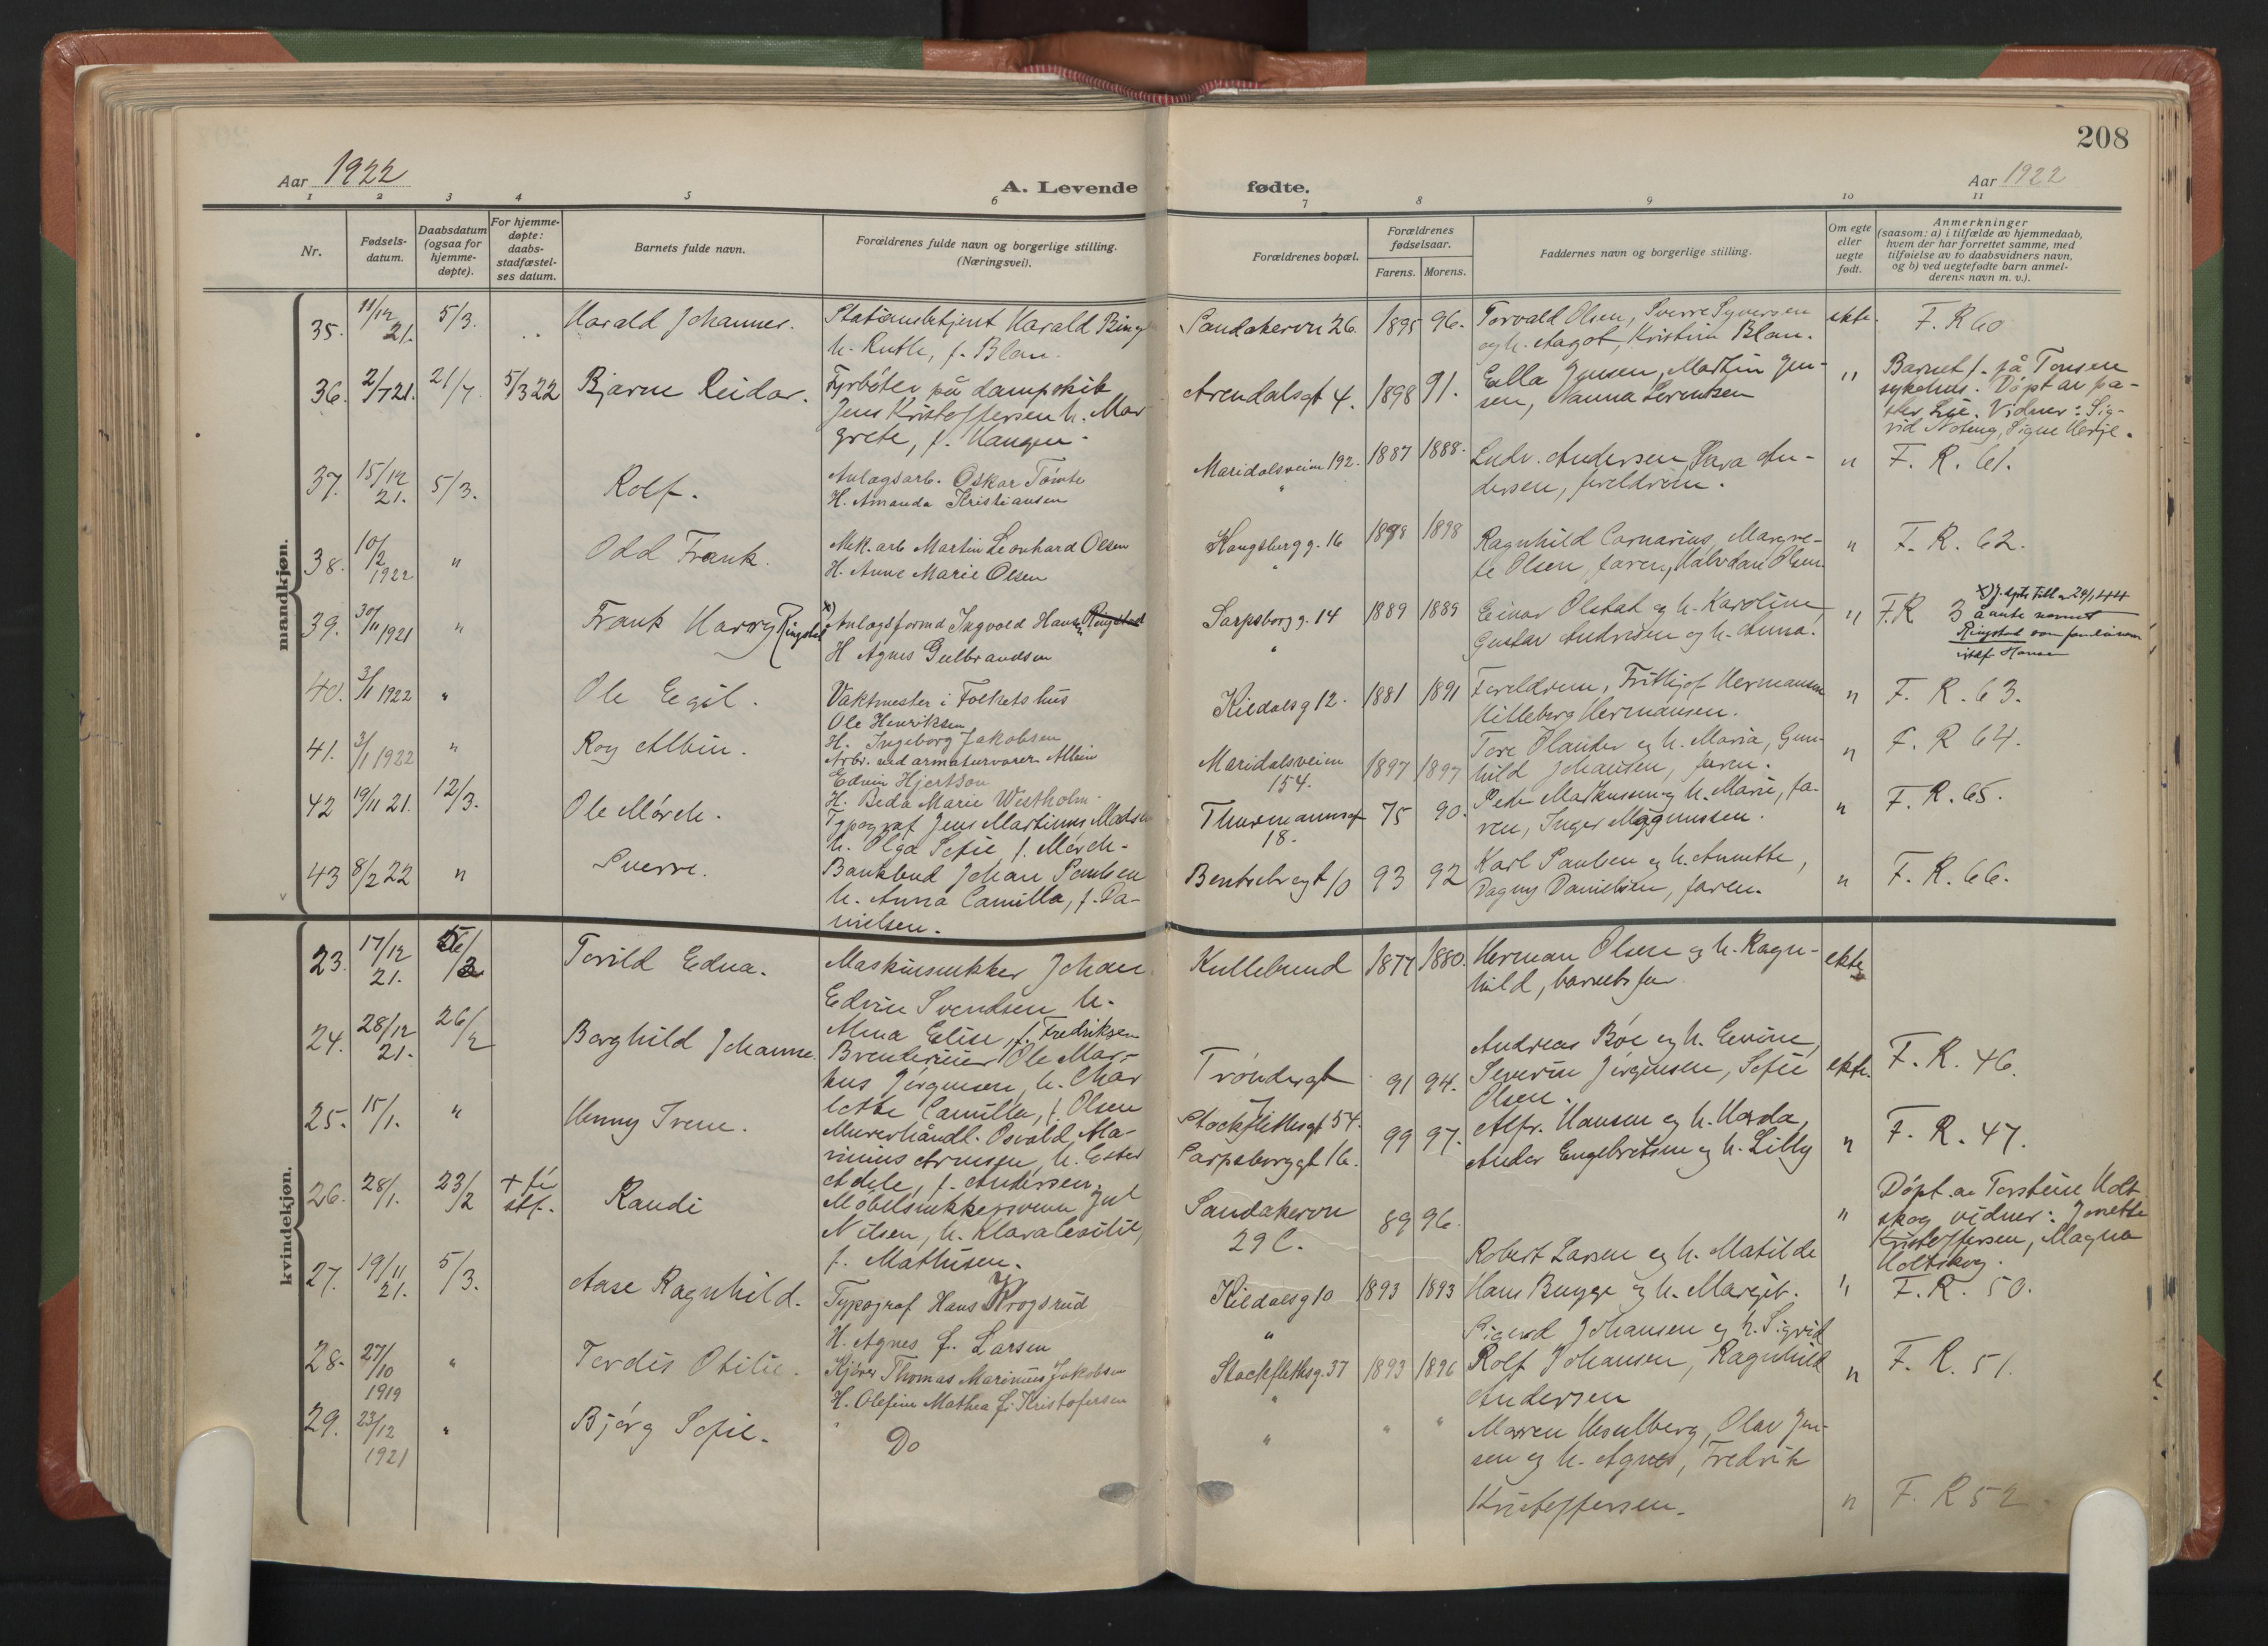 208
Aar 1922
A. Levende fødte.
Aar 1922
1 2 3 4 5 6 7 8 9 10 11
Nr.
Fødsels-
datum.
Daabsdatum
(ogsaa for
hjemme-
døpte).
For hjemme-
døpte:
daabs-
stadfæstel-
ses datum.
Barnets fulde navn.
Forældrenes fulde navn og borgerlige stilling.
(Næringsvei).
Forældrenes bopæl.
Forældrenes
fødselsaar.
Farens. Morens.
Faddernes navn og borgerlige stilling.
Om egte
eller
uegte
født.
Anmerkninger
(saasom: a) i tilfælde av hjemmedaab,
hvem der har forrettet samme, med
tilføielse av to daabsvidners navn,
og b) ved uegtefødte barn anmel-
derens navn m. v.).
mandkjøn.
35. 11/12 21. 5/3. Harald Johannes.
Stationsbetjent Harald Ring
h. Ruth, f. Blau.
Sandakervn 26. 1895 96.
Torvald Olsen, Sverre Syversen
og h. Aagot, Kristine Blau.
ekte. F. R 60
36. 2/7 21. 21/7. 5/3 22 Bjarne Reidar.
Fyrbøter på dampskib
Jens Kristoffersen h. Mar
grete, f. Haugen.
Arendalsgt 4. 1898 91.
Ella Jensen, Martin Jen-
sen, Nanna Lorentsen
" Barnet f. på Tonsen
sykehus. Døpt av pa-
stor Lie. Vidner: Sig-
rid Noteng, Signe Herje.
37. 15/12 21. 5/3. Rolf.
Anlagsarb. Oskar Tømte
H. Amanda Kristiansen
Maridalsveien 192. 1887 1888.
Ludv. Andersen, Sara An-
dersen, foreldrene.
" F. R. 61.
38. 10/2 1922 " Odd Frank.
Mek. arb Martin Leonhard Olsen
H. Anne Marie Olsen
Kongsbergg. 16 1898 1898
Ragnhild Carnarius, Margre-
te Olsen, faren, Halvdan Olsen.
" F. R. 62.
39. 30/11 1921 " Frank Harry Ringstad
x) Anlagsformd Ingvald Hansen Ringstad
H Agnes Gulbrandsen
Sarpsborg g. 14 1889 1889
Einar Olstad og h. Karoline,
Gustav Andresen og h. Anna.
" F. R 3
å anta navnet
Ringstad som familienavn
istdf. Hansen
40. 3/1 1922 " Ole Egil.
Vaktmester i Folkets hus
Ole Henriksen
H. Ingeborg Jakobsen
Kieldals g 12. 1881 1891
Foreldrene, Frithjof Hermansen
Hilleborg Hermansen.
" F. R. 63.
41. 3/1 1922 " Roy Albin.
Arbr. ved armaturvarer Albin
Edvin Hjertson
H. Beda Marie Westholm.
Maridalsveien
154. 1897 1897
Tore Olander og h. Maria, Gun-
hild Johansen, faren.
" F. R 64.
42 19/11 21. 12/3. Ole Mørch.
Typograf Jens Martinus Madsen
h. Olga Sofie f. Mørch.
Thurmannsgt
18. 75 90.
Peder Markussen og h. Marie, fa-
ren, Inger Magnussen.
" F. R. 65.
43 8/2 22 " Sverre.
Bankbud Johan Paulsen
h. Anna Camilla, f. Da-
nielsen.
Bentsebrogt 10 93 92
Karl Paulsen og h. Annette,
Dagny Danielsen, faren.
" F. R. 66.
kvindekjøn.
23. 17/12 21. Torild Edna.
Maskinsnekker Johan
Edvin Svendsen h.
Alma Elise, f. Fredriksen
Kullebund 1877 1880.
Herman Olsen og h. Ragn-
hild, barnets far
ekte
24. 28/12 21. 26/2 Borghild Johanne.
Brenderiier Ole Mar-
kus Jørgensen, h. Char
lotte Camilla, f. Olsen
Trøndergt 91 94.
Andreas Bøe og h. Emine,
Severin Jørgensen, Sofie
Olsen.
ekte. F. R. 46.
25. 15/1. " Henny Irene.
Murerhåndl. Osvald Ma-
rinius Arnesen, h. Ester
Adele, f. Andersen.
Stockflethsgt 54.
Sarpsborggt 16. 99 97.
Alfr. Hansen og h. Harda,
Ander Engebretsen og h. Lilly
" F. R. 47.
26. 28/1. 23/2 Randi
Møbelsnekkersvenn Jul
Nilsen, h. Klara Cecilie,
f. Mathisen.
Sandakervn
29 C. 89 96.
" Døpt av Torstein Holt
skog vidner: Jonette
Kristoffersen, Magna
Holtskog.
27. 19/11 21. 5/3. Aase Ragnhild.
Typograf Hans Krogsrud
H. Agnes f. Larsen
Kieldalsg 10 1893 1893
Robert Larsen og h. Matilde
Hans Bugge og h. Margit.
" F. R. 50.
28. 27/10 1919 " Tordis Otilie.
Kjører Thomas Marinius Jakobsen
H. Olefine Mathea f. Kristofersen
Stockflethsg. 37 1893 1896
Sigurd Johansen og h. Sigrid
Rolf Johansen, Ragnhild
Andersen
" F. R. 51.
29. 23/12 1921 " Bjørg Sofie.
Do
" " "
Marren Heselberg, Olav Jen-
sen og h. Agnes, Fredrik
Kristoffersen.
" F. R 52.